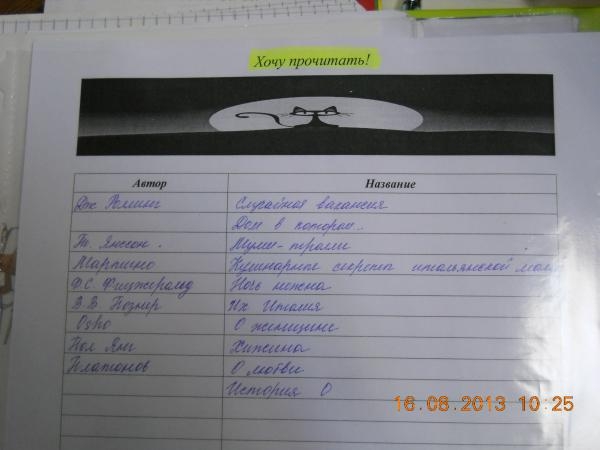 Хочу прочитать!
Автор Название
Дж. Роллинг Случайная вакансия
Дом в котором..
Т. Янссон. Муми-тролли
Мартино Кулинарные секреты итальянской
Ф.С. Фицжеральд Ночь нежна
В.В. Познер Их Италия
Osho О женщине
Пол Янг Хижина
Платонов О любви
История О
16.08.2013 10:25